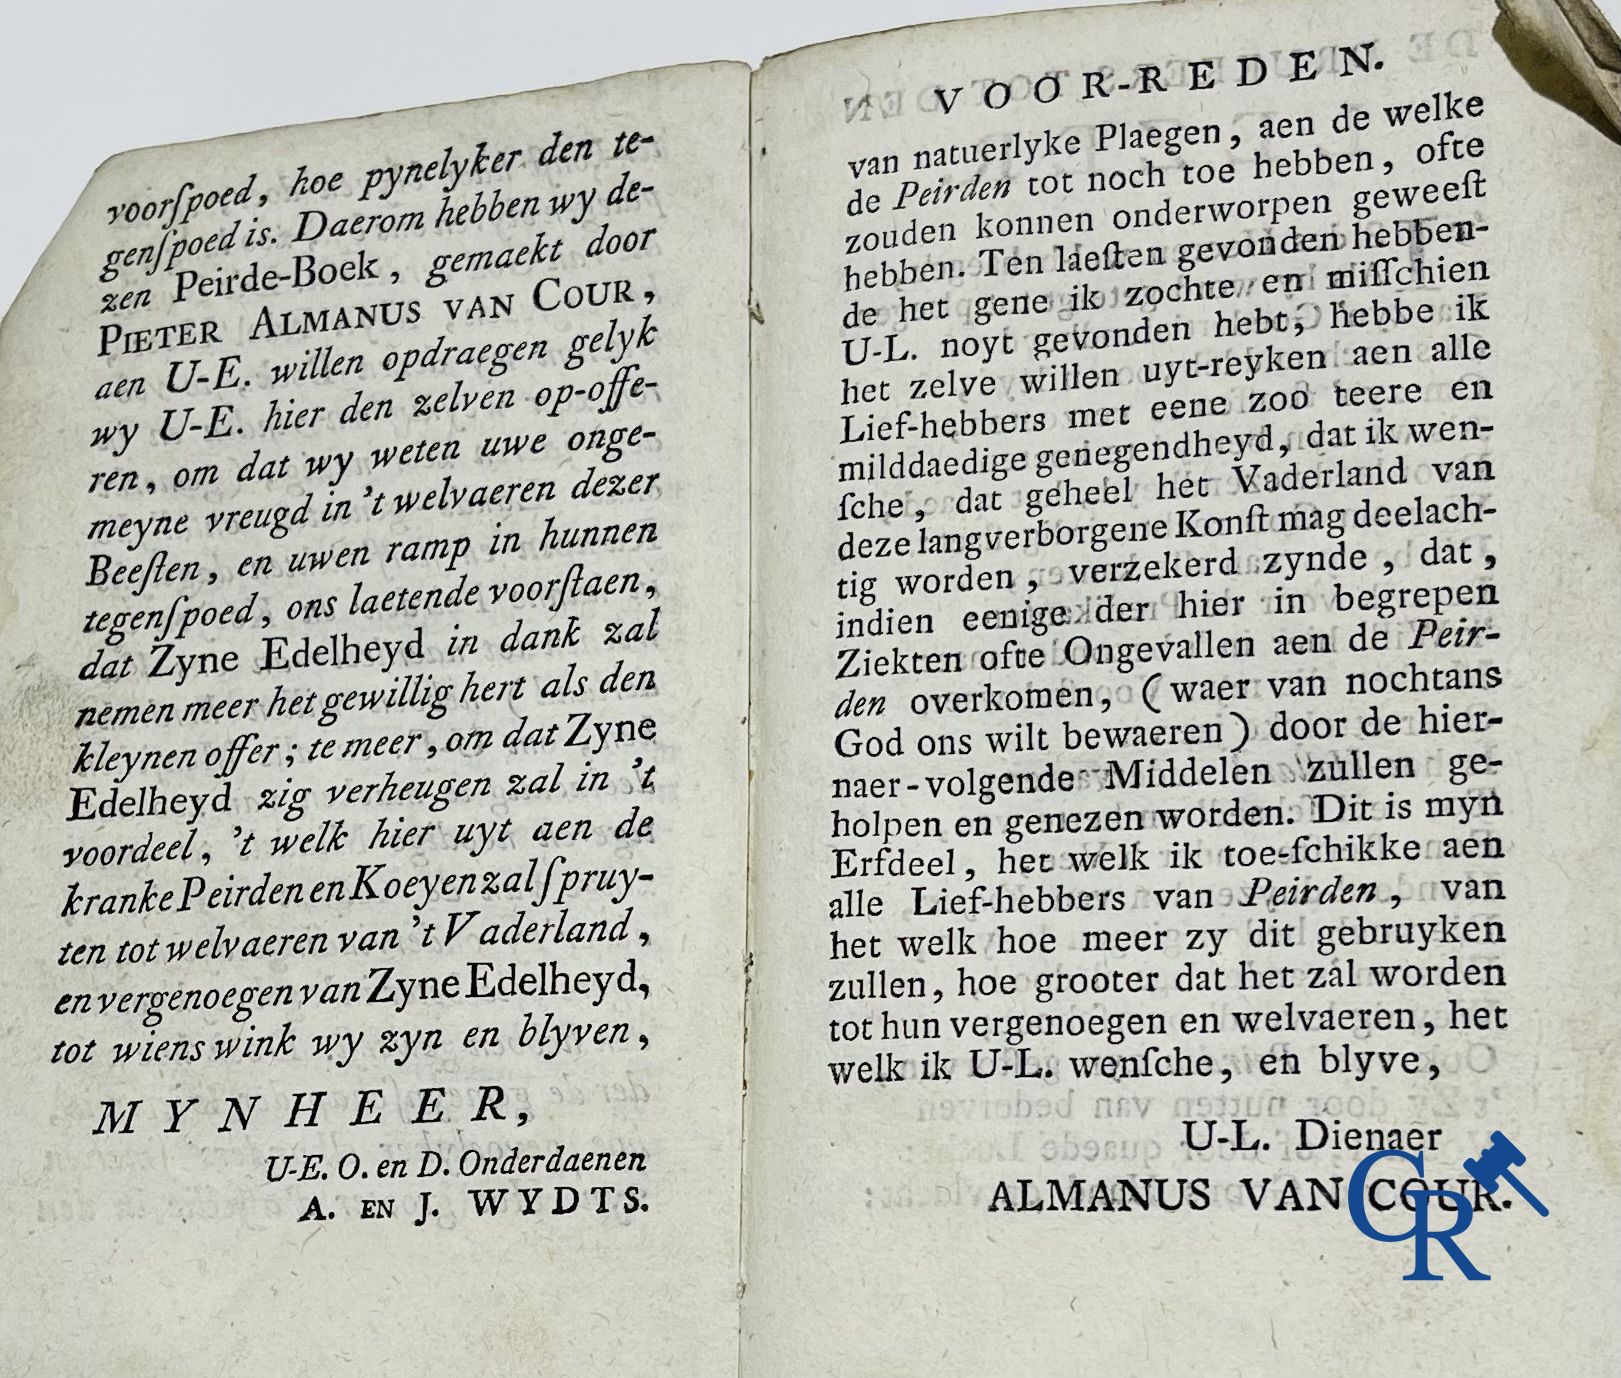 voorſpoed, hoe pynelyker den te-
genſpoed is. Daerom hebben wy de-
zen Peirde-Boek, gemaekt door
PIETER ALMANUS VAN COUR,
aen U-E. willen opdraegen gelyk
wy U-E. hier den zelven op-offe-
ren, om dat wy weten uwe onge-
meyne vreugd in 't welvaeren dezer
Beeſten, en uwen ramp in hunnen
tegenſpoed, ons laetende voorſtaen,
dat Zyne Edelheyd in dank zal
nemen meer het gewillig hert als den
kleynen offer; te meer, om dat Zyne
Edelheyd zig verheugen zal in 't
voordeel, 't welk hier uyt aen de
kranke Peirden en Koeyen zal ſpruy-
ten tot welvaeren van 't Vaderland,
en vergenoegen van Zyne Edelheyd,
tot wiens wink wy zyn en blyven,
MYNHEER,
U-E. O. en D. Onderdaenen
A. EN J. WYDTS.
VOOR-REDEN.
van natuerlyke Plaegen, aen de welke
de Peirden tot noch toe hebben, ofte
zouden konnen onderworpen geweeſt
hebben. Ten laeſten gevonden hebben-
de het gene ik zochte en miſſchien
U-L. noyt gevonden hebt, hebbe ik
het zelve willen uyt-reyken aen alle
Lief-hebbers met eene zoo teere en
milddaedige genegendheyd, dat ik wen-
ſche, dat geheel het Vaderland van
deze langverborgene Konſt mag deelach-
tig worden, verzekerd zynde, dat,
indien eenige der hier in begrepen
Ziekten ofte Ongevallen aen de Peir-
den overkomen, (waer van nochtans
God ons wilt bewaeren) door de hier-
naer-volgende Middelen zullen ge-
holpen en genezen worden. Dit is myn
Erfdeel, het welk ik toe-ſchikke aen
alle Lief-hebbers van Peirden, van
het welk hoe meer zy dit gebruyken
zullen, hoe grooter dat het zal worden
tot hun vergenoegen en welvaeren, het
welk ik U-L. wenſche, en blyve,
U-L. Dienaer
ALMANUS VAN COUR.
CR